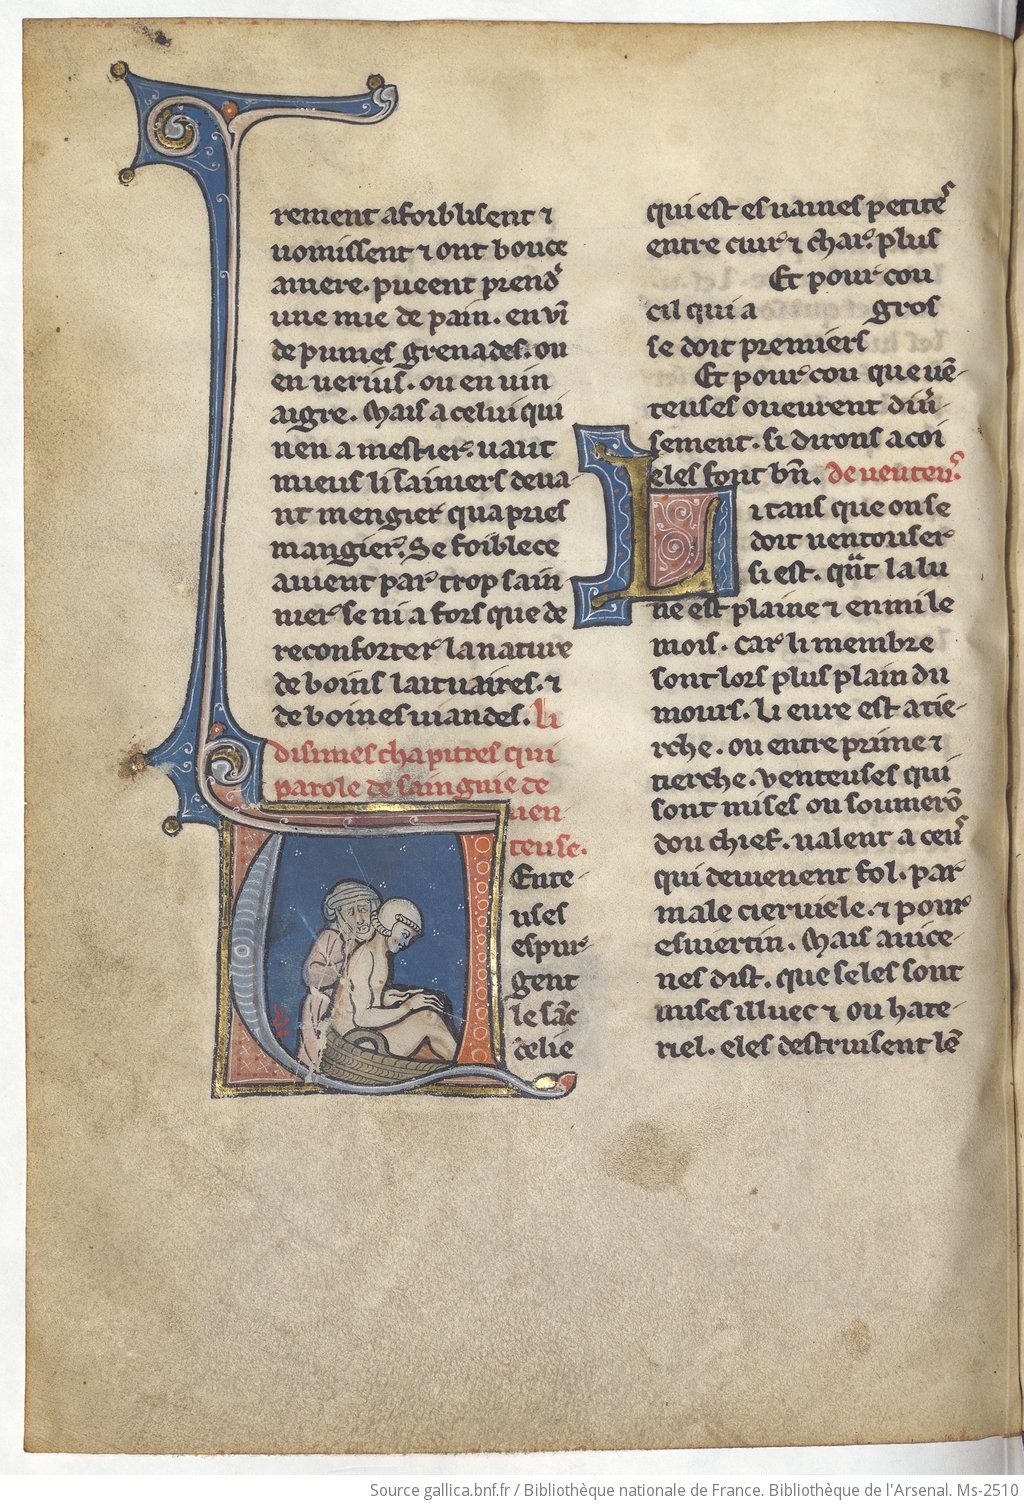 rement afoiblisent ⁊
uomissent ⁊ ont bouce
amere. pueent prendʾ
une mie de pain. en vī
de pumes grenades. ou
en uerius. ou en uin
aigre. Mais a celui qui
nen a mestier. uaut
mieus li sainiers deua-
nt mengier qua pries
mangier. Se foiblece
auient par trop sain
nier se ni a fors que de
reconforter la nature
de boins laituaires. ⁊
de boines uiandes. Li
disimes chapitres qui
parole de sainguie de
uen
teuse.
Ente-
uses
espur-
gent
le sāc
delie
qui est es uaines petites
entre cuir ⁊ char. plus
Et pour cou
cil qui a gros
se doit premiers
Et pour cou que uē-
teuses oueurent diu-
sement. si dirons a coi
eles font bn̄. de uenteus
Li tans que on se
doit uentouser
si est. qāt la lu
ne est plaine ⁊ en mi le
mois. car li membre
sont lors plus plain du
mours. Li eure est a tie-
rche. ou entre prime ⁊
tierche. venteuses qui
sont mises ou soumerō
dou chief. ualent a ceus
qui deuienent fol. par
male cieruiele. ⁊ pour
esuiertin. Mais auice-
nes dist. que se les sont
mises illuec ⁊ ou hate-
riel. eles destruisent lē
Source gallica.bnf.fr / Bibliothèque nationale de France. Bibliothèque de l'Arsenal. Ms-2510